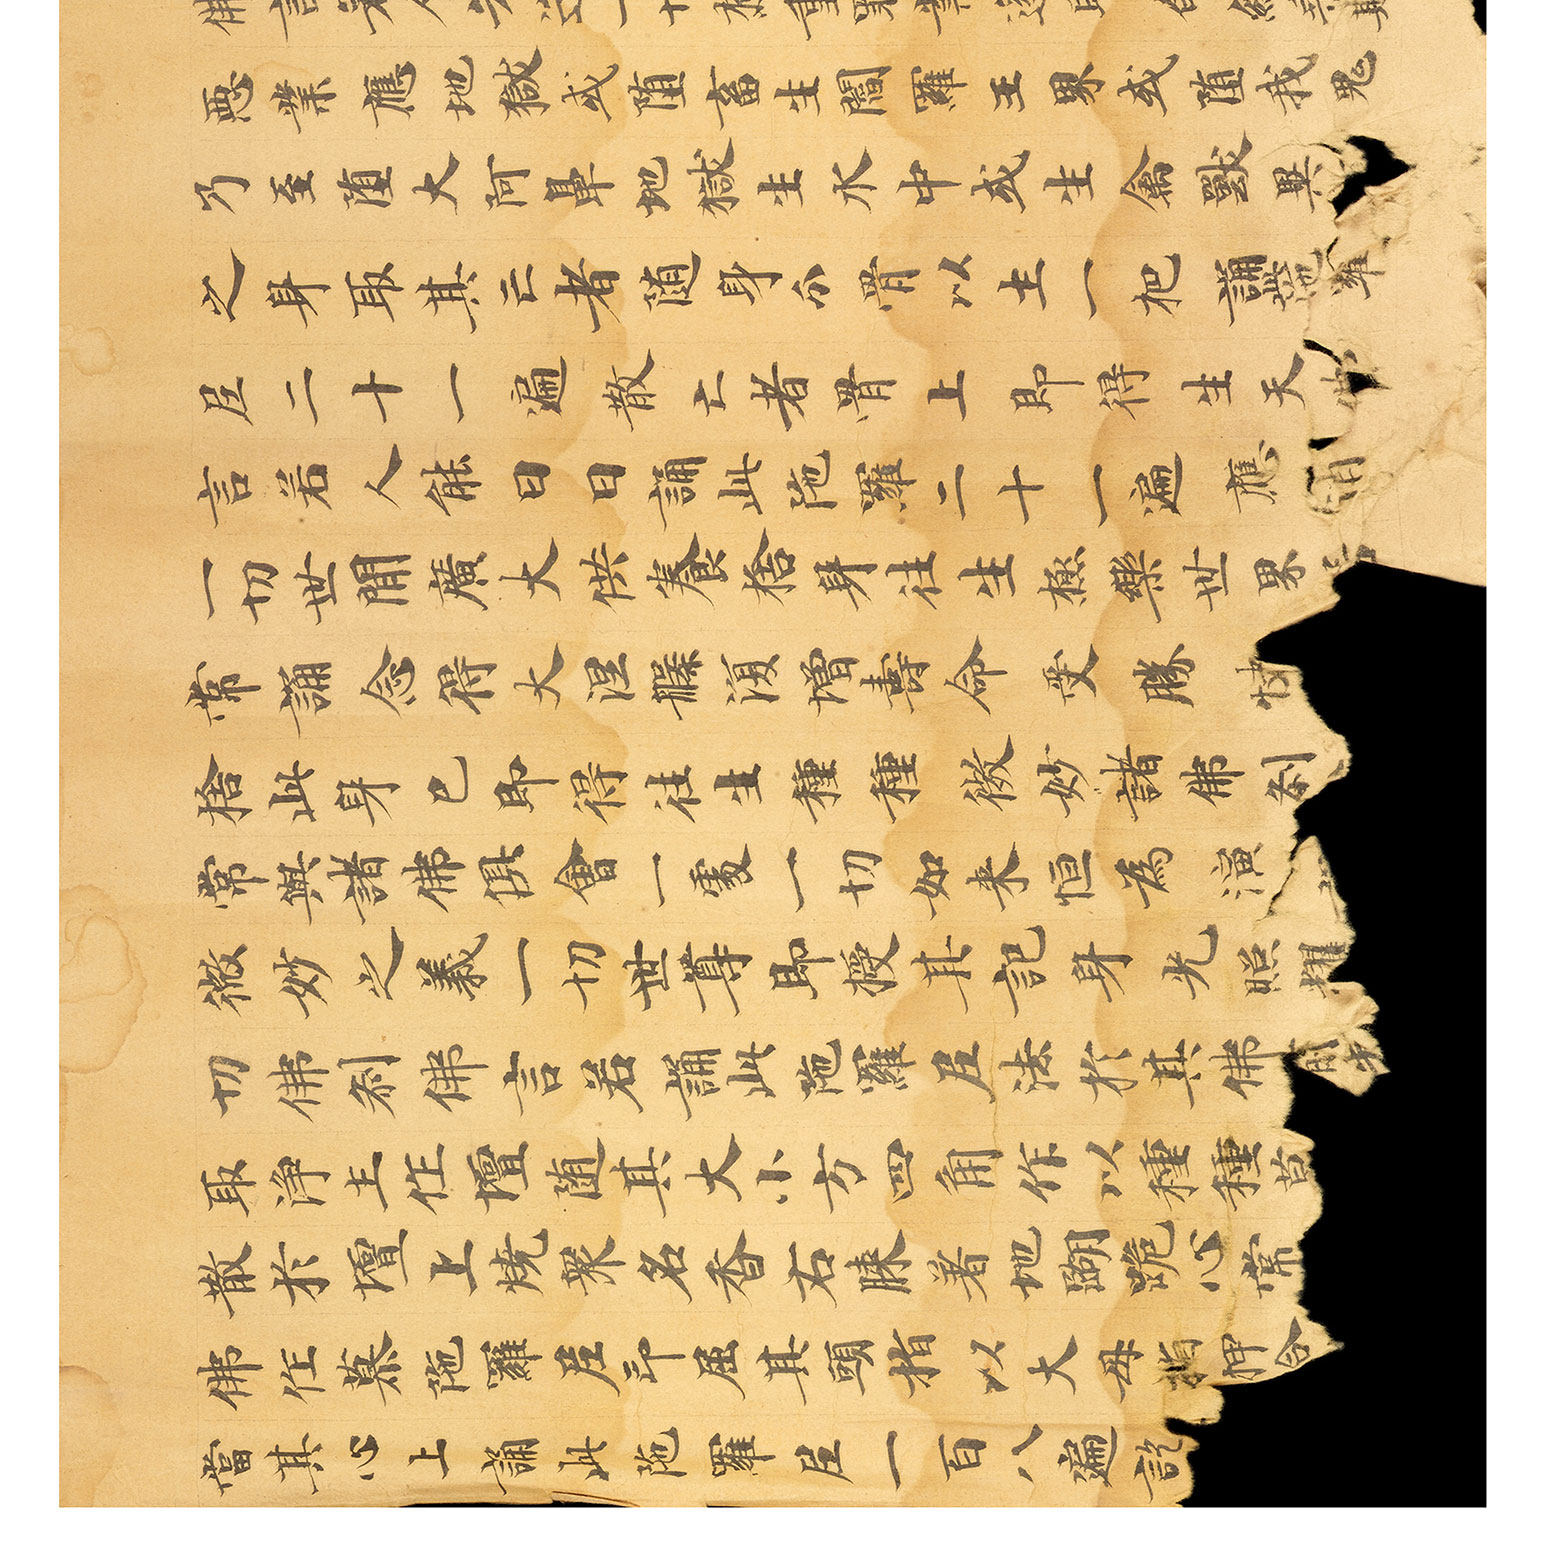 佛言若人先造一切極重罪業遂即命終
惡業應地獄或随畜生閻羅王界或随我鬼
乃至随大阿鼻地獄生水中或生禽獸異
之身取其亡者随身分骨以土一把誦此陁羅
尼二十一遍散亡者骨上即得生天佛
言若人能日日誦此陁羅二十一遍應消
一切世間廣大供養捨身往生極樂世界
常誦念得大涅槃復增壽命受勝快
捨此身已即得往生種種微妙諸佛刹
常與諸佛俱會一處一切如来恒為演
微妙之義一切世尊即授其記身光照耀
切佛刹佛言若誦此陁羅尼法於其佛前先
取淨土作壇随其大小方四角作以種種草
散於壇上燒衆名香右膝著地䠒跪心常
佛作慕陁羅尼印屈其頭指以大母指押合
當其心上誦此陁羅尼一百八遍訖